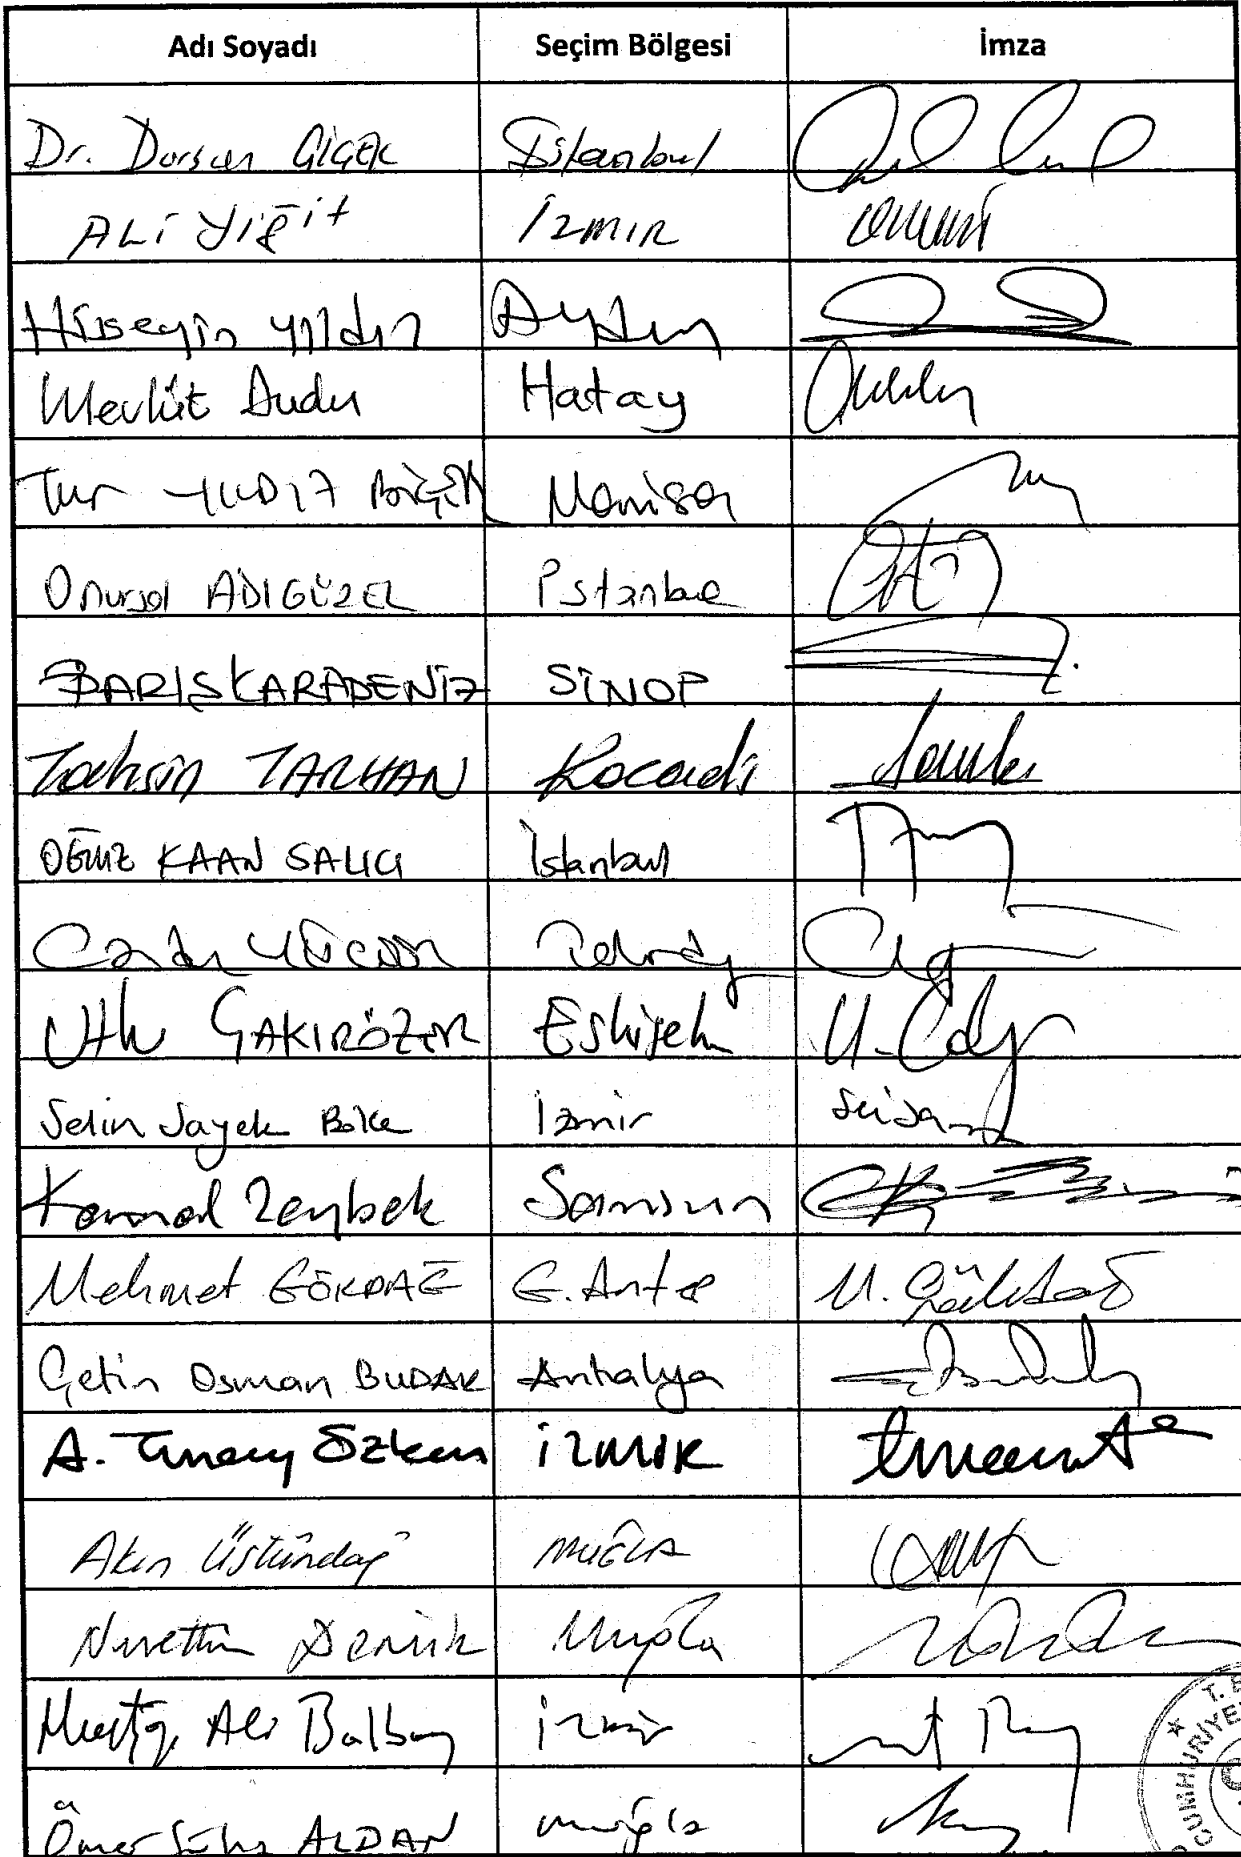 Adı Soyadı Seçim Bölgesi İmza
Dr. Dursun ÇİÇEK İstanbul
ALİ YİĞİT İZMİR
Hüseyin Yıldız Aydın
Mevlüt Dudu Hatay
Tur YILDIZ BİÇER Manisa
Onursal ADIGÜZEL İstanbul
BARIŞ KARADENİZ SİNOP
Tahsin TARHAN Kocaeli
OĞUZ KAAN SALICI İstanbul
Candan YÜCEER Tekirdağ
Utku ÇAKIRÖZER Eskişehir
Selin Sayek Böke İzmir
Kemal Zeybek Samsun
Mehmet GÖKDAĞ G.Antep M. Gökdağ
Çetin Osman BUDAK Antalya
A. Tuncay Özkan İZMİR
Akın Üstündağ MUĞLA
Nurettin Demir Muğla
Mustafa Ali Balbay İzmir
Ömer Süha ALDAN muğla
CUMHURİYE